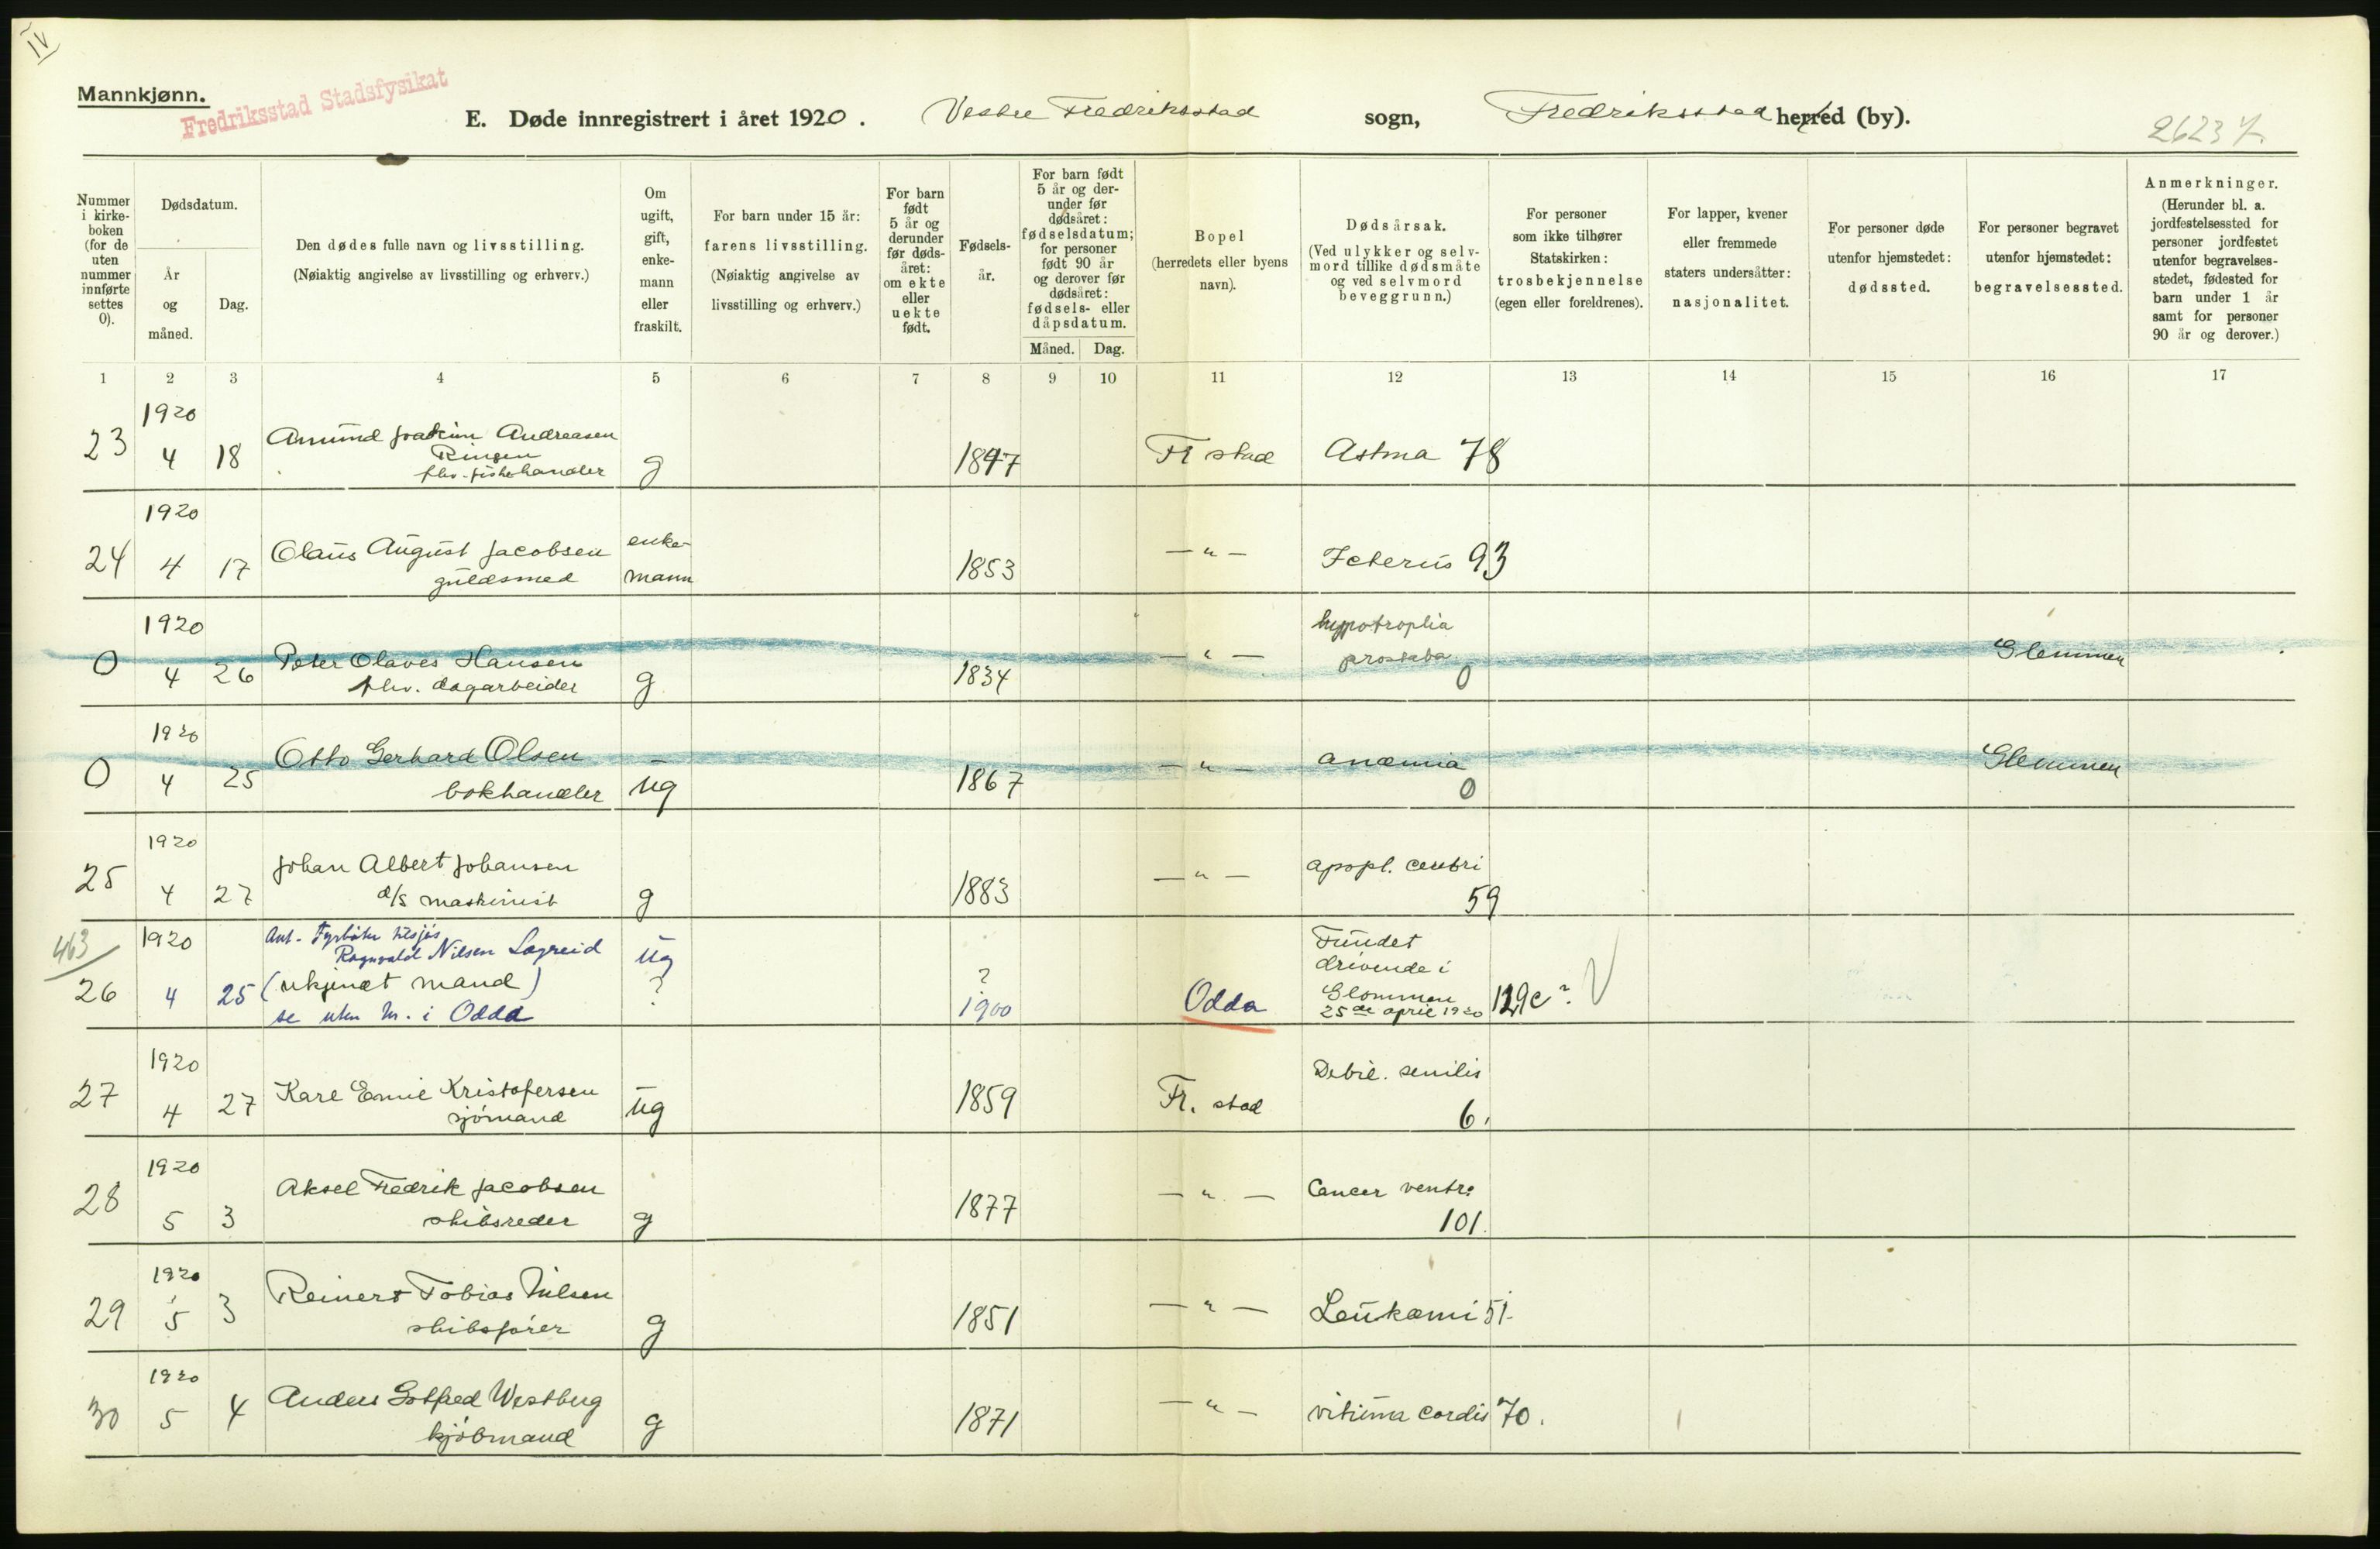 IV
Mannkjønn.
Fredriksstad Stadsfysikat
E. Døde innregistrert i året 1920. Vestre Fredriksstad sogn, Fredriksstad herred (by).
26237.
Nummer i kirke- boken (for de uten nummer innførte settes 0).
Dødsdatum.
År og måned.
Dag.
Den dødes fulle navn og livsstilling.
(Nøiaktig angivelse av livsstilling og erhverv.)
Om ugift, gift, enke- mann eller fraskilt.
For barn under 15 år:
farens livsstilling.
(Nøiaktig angivelse av
livsstilling og erhverv.)
For barn født 5 år og derunder før døds- året: om ekte eller uekte født.
Fødsels- år.
For barn født 5 år og der- under før dødsåret: fødselsdatum; for personer født 90 år og derover før dødsåret: fødsels- eller dåpsdatum.
Måned. Dag.
Bopel
(herredets eller byens navn).
Dødsårsak.
(Ved ulykker og selv- mord tillike dødsmåte og ved selvmord beveggrunn.)
For personer som ikke tilhører Statskirken: trosbekjennelse (egen eller foreldrenes).
For lapper, kvener eller fremmede staters undersåtter: nasjonalitet.
For personer døde utenfor hjemstedet: dødssted.
For personer begravet utenfor hjemstedet: begravelsessted.
Anmerkninger.
(Herunder bl. a. jordfestelsessted for personer jordfestet utenfor begravelses- stedet, fødested for barn under 1 år samt for personer 90 år og derover.)
1 2 3 4 5 6 7 8 9 10 11 12 13 14 15 16 17
1920
23 4 18 Amund Joakim Andreasen
Ringen
fhv. fiskehandler g 1847 Fr stad Astma 78
1920
24 4 17 Olaus August Jacobsen
guldsmed enke- mann 1853 — " — Icterus 93
1920
0 4 26 Peter Olaves Hansen
fhv. dagarbeider g 1834 — " — hypotrophia prostata 0 Glemmen
1920
0 4 25 Otto Gerhard Olsen
bokhandler ug 1867 — " — anæmia 0 Glemmen
1920
25 4 27 Johan Albert Johansen
d/s maskinist g 1883 — " — apopl. cerebri 59
463
1920
26 4 25 Ant. Fyrbøter tilsjøs
Ragnvald Nilsen Lægreid
(ukjendt mand)
se uten Nr. i Odda ug ? ? 1900 Odda Fundet
drivende i
Glommen
25de april 1920 129c ? V
1920
27 4 27 Karl Emil Kristofersen
sjömand ug 1859 Fr. stad Debil. senilis
6.
1920
28 5 3 Aksel Fredrik Jacobsen
skibsreder g 1877 — " — Cancer ventri
101.
1920
29 5 3 Reinert Tobias Nilsen
skibsfører g 1851 — " — Leukæmi 51.
1920
30 5 4 Anders Gotfred Westberg
kjöbmand g 1871 — " — vitium cordis 70.